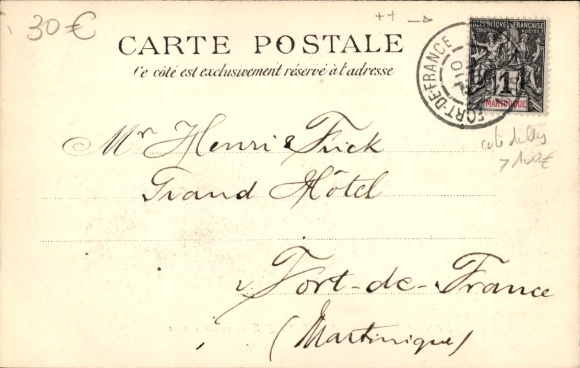 30€
CARTE POSTALE
Ce côté est exclusivement réservé à l'adresse
RÉPUBLIQUE FRANÇAISE
1
MARTINIQUE
FORT-DE-FRANCE
Mr Henri Frick
Grand Hôtel
Fort-de-France
(Martinique)